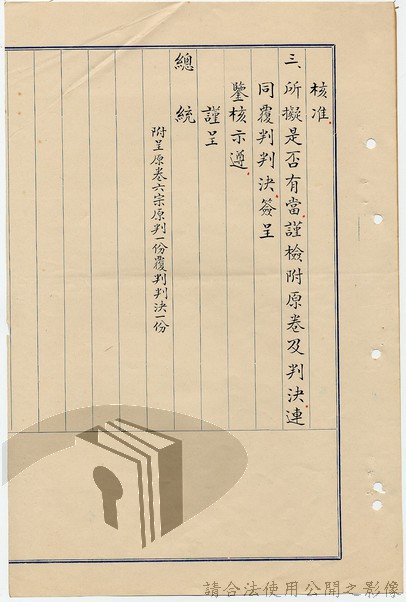 核准。
三、所擬是否有當，謹檢附原卷及判決連
同覆判判決簽呈
鑒核示遵。
謹呈
總統
附呈原卷六宗原判一份覆判判決一份
請合法使用公開之影像